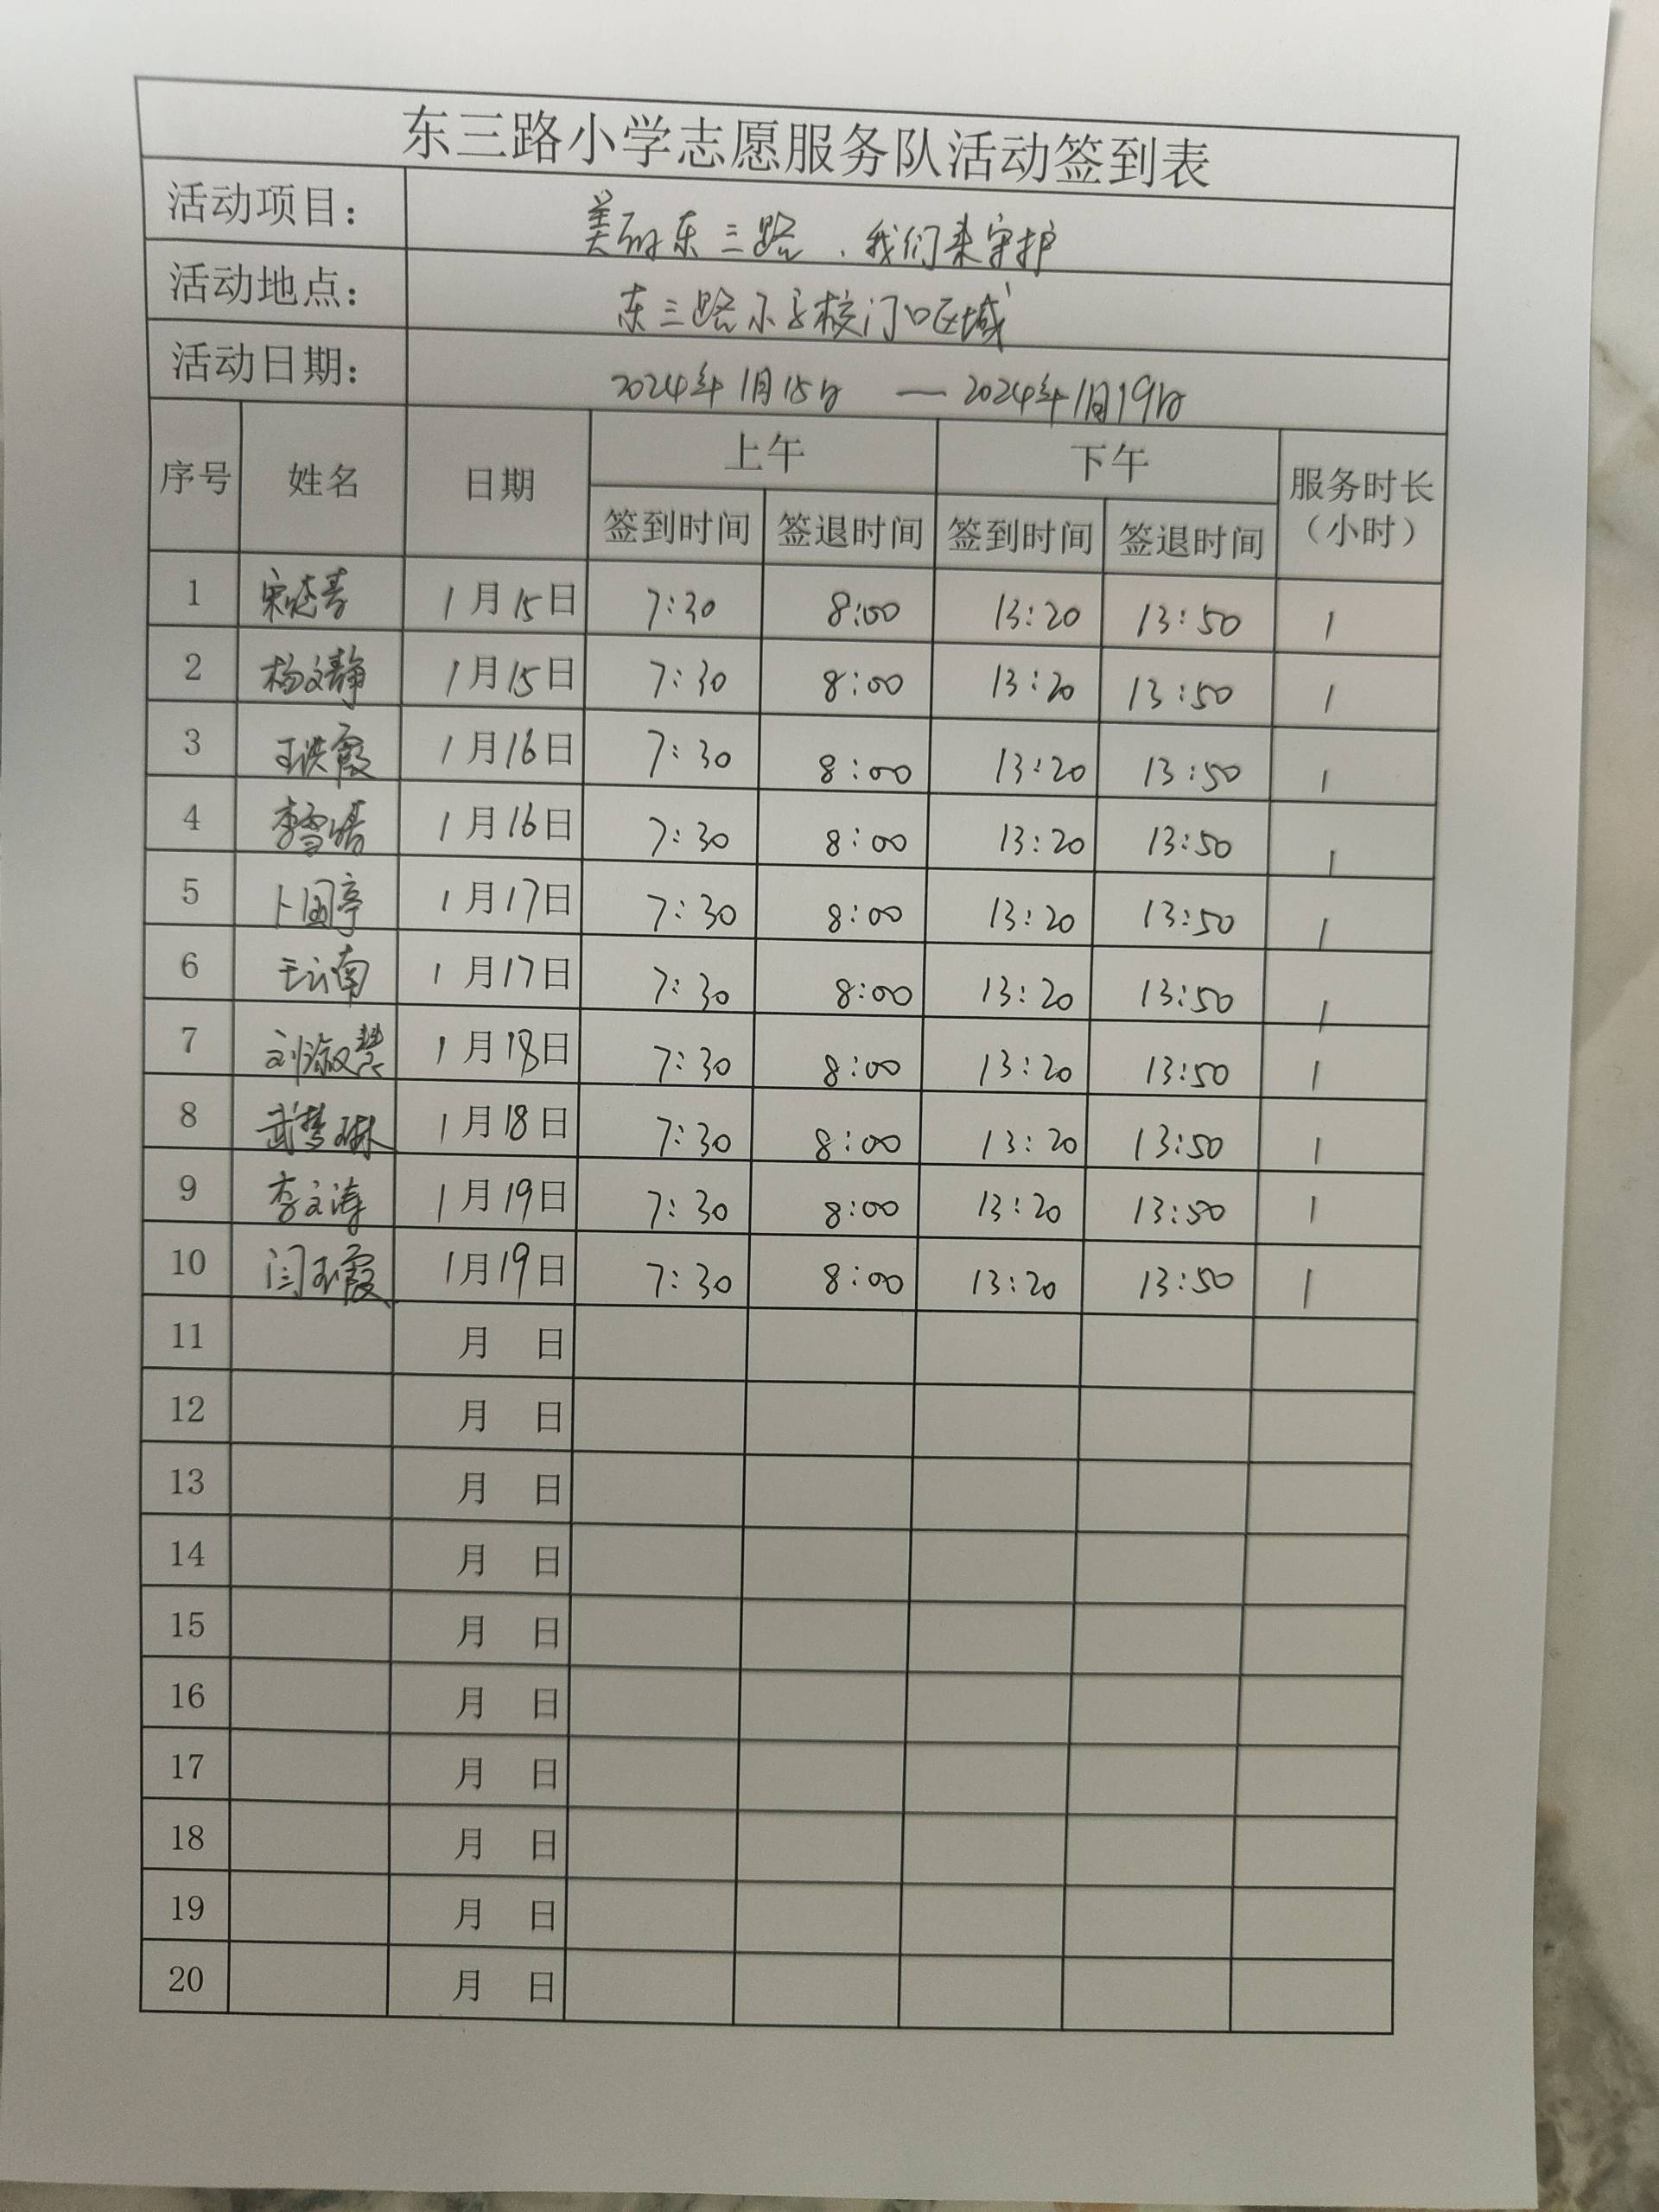 东三路小学志愿服务队活动签到表
活动项目： 美丽东三路、我们来守护
活动地点： 东三路小学校门口区域
活动日期： 2024年1月15日 — 2024年1月19日
序号 姓名 日期 上午 下午 服务时长（小时）
签到时间 签退时间 签到时间 签退时间
1 1月15日 7:30 8:00 13:20 13:50 1
2 杨文静 1月15日 7:30 8:00 13:20 13:50 1
3 王洪霞 1月16日 7:30 8:00 13:20 13:50 1
4 1月16日 7:30 8:00 13:20 13:50 1
5 1月17日 7:30 8:00 13:20 13:50 1
6 王云南 1月17日 7:30 8:00 13:20 13:50 1
7 刘淑慧 1月18日 7:30 8:00 13:20 13:50 1
8 武梦琳 1月18日 7:30 8:00 13:20 13:50 1
9 李文涛 1月19日 7:30 8:00 13:20 13:50 1
10 闫玉霞 1月19日 7:30 8:00 13:20 13:50 1
11 月 日
12 月 日
13 月 日
14 月 日
15 月 日
16 月 日
17 月 日
18 月 日
19 月 日
20 月 日